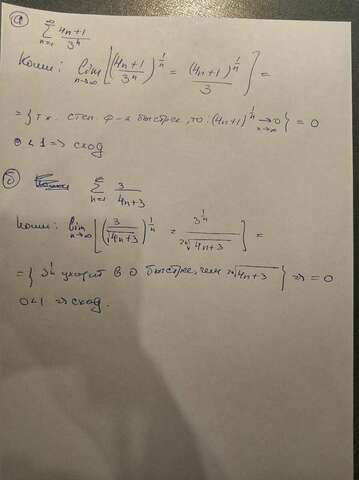 а) \sum_{n=1}^{\infty} \frac{4n+1}{3^n}
Коши: \lim_{n→∞} [(\frac{4n+1}{3^n})^{\frac{1}{n}} = \frac{(4n+1)^{\frac{1}{n}}}{3}] =
= {т.к. степ. ф-я быстрее, то: (4n+1)^{\frac{1}{n}} →_{n→∞} 0} = 0
0 < 1 => сход
б) \sum_{n=1}^{∞} \frac{3}{4n+3}
Коши: \lim_{n→∞} [(\frac{3}{\sqrt{4n+3}})^{\frac{1}{n}} = \frac{3^{\frac{1}{n}}}{\sqrt[2n]{4n+3}}] =
= {3^{\frac{1}{n}} уходит в 0 быстрее, чем \sqrt[2n]{4n+3}} => = 0
0<1 => сход.